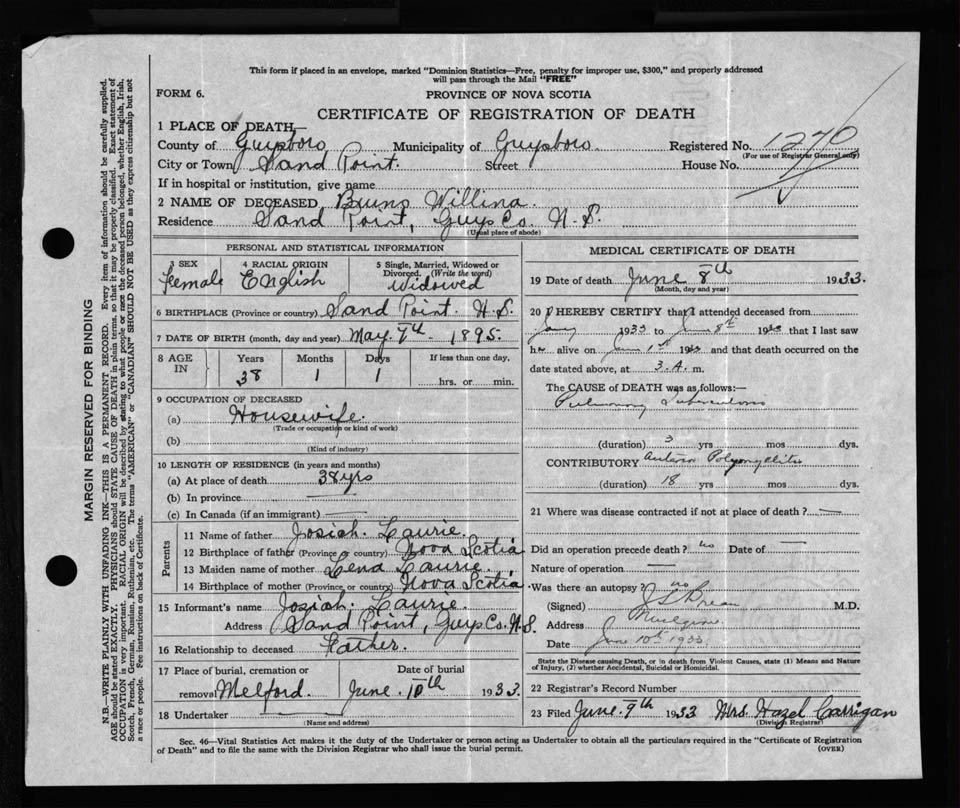 This form if placed in an envelope, marked "Dominion Statistics—Free, penalty for improper use, $300," and properly addressed
will pass through the Mail "FREE"
FORM 6.
PROVINCE OF NOVA SCOTIA
CERTIFICATE OF REGISTRATION OF DEATH
1 PLACE OF DEATH—
County of Guysboro Municipality of Guysboro. Registered No. 1270
(For use of Registrar General only)
City or Town Sand Point. Street House No.
If in hospital or institution, give name
2 NAME OF DECEASED Bruns Willina.
Residence Sand Point, Guys Co. N.S.
(Usual place of abode)
PERSONAL AND STATISTICAL INFORMATION
3 SEX Female
4 RACIAL ORIGIN English
5 Single, Married, Widowed or
Divorced. (Write the word)
Widowed
6 BIRTHPLACE (Province or country) Sand Point. N.S.
7 DATE OF BIRTH (month, day and year) May. 7th - 1895.
8 AGE IN Years 38 Months 1 Days 1 If less than one day, hrs. or min.
9 OCCUPATION OF DECEASED
(a) Housewife.
(Trade or occupation or kind of work)
(b)
(Kind of industry)
10 LENGTH OF RESIDENCE (in years and months)
(a) At place of death 38 yrs
(b) In province —
(c) In Canada (if an immigrant) —
Parents
11 Name of father Josiah. Laurie.
12 Birthplace of father (Province or country) Nova Scotia
13 Maiden name of mother Lena Laurie.
14 Birthplace of mother (Province or country) Nova Scotia
15 Informant's name Josiah. Laurie.
Address Sand Point, Guys Co. N.S.
16 Relationship to deceased Father.
17 Place of burial, cremation or
removal Melford.
Date of burial
June. 10th 1933.
18 Undertaker —
(Name and address)
MEDICAL CERTIFICATE OF DEATH
19 Date of death June 8th 1933.
(Month, day and year)
20 I HEREBY CERTIFY that I attended deceased from
Jany 1933 to June 8th 1933 that I last saw
her alive on June 1st 1933 and that death occurred on the
date stated above, at 3. A. m.
The CAUSE of DEATH was as follows:—
Pulmonary Tuberculosis
(duration) 3 yrs mos dys.
CONTRIBUTORY Anterior Polyomyelitis
(duration) 18 yrs. mos. dys.
21 Where was disease contracted if not at place of death? —
Did an operation precede death? no Date of —
Nature of operation —
Was there an autopsy? no
(Signed) M.D.
Address Mulgrave
Date June 10th 1933
State the Disease causing Death, or in death from Violent Causes, state (1) Means and Nature
of Injury, (2) whether Accidental, Suicidal or Homicidal.
22 Registrar's Record Number
23 Filed June. 9th 1933 Mrs. Hazel Carrigan
(Division Registrar)
Sec. 46—Vital Statistics Act makes it the duty of the Undertaker or person acting as Undertaker to obtain all the particulars required in the "Certificate of Registration
of Death" and to file the same with the Division Registrar who shall issue the burial permit.
(OVER)
MARGIN RESERVED FOR BINDING
N.B.—WRITE PLAINLY WITH UNFADING INK—THIS IS A PERMANENT RECORD. Every item of information should be carefully supplied.
AGE should be stated EXACTLY. PHYSICIANS should STATE CAUSE OF DEATH in plain terms, so that it may be properly classified. Exact statement of
OCCUPATION is very important. RACIAL ORIGIN will be described by stating to what people or race the deceased person belonged, whether English, Irish,
Scotch, French, German, Russian, Ruthenian, etc. The terms "AMERICAN" or "CANADIAN" SHOULD NOT BE USED as they express citizenship but not
a race or people. Fee instructions on back of Certificate.